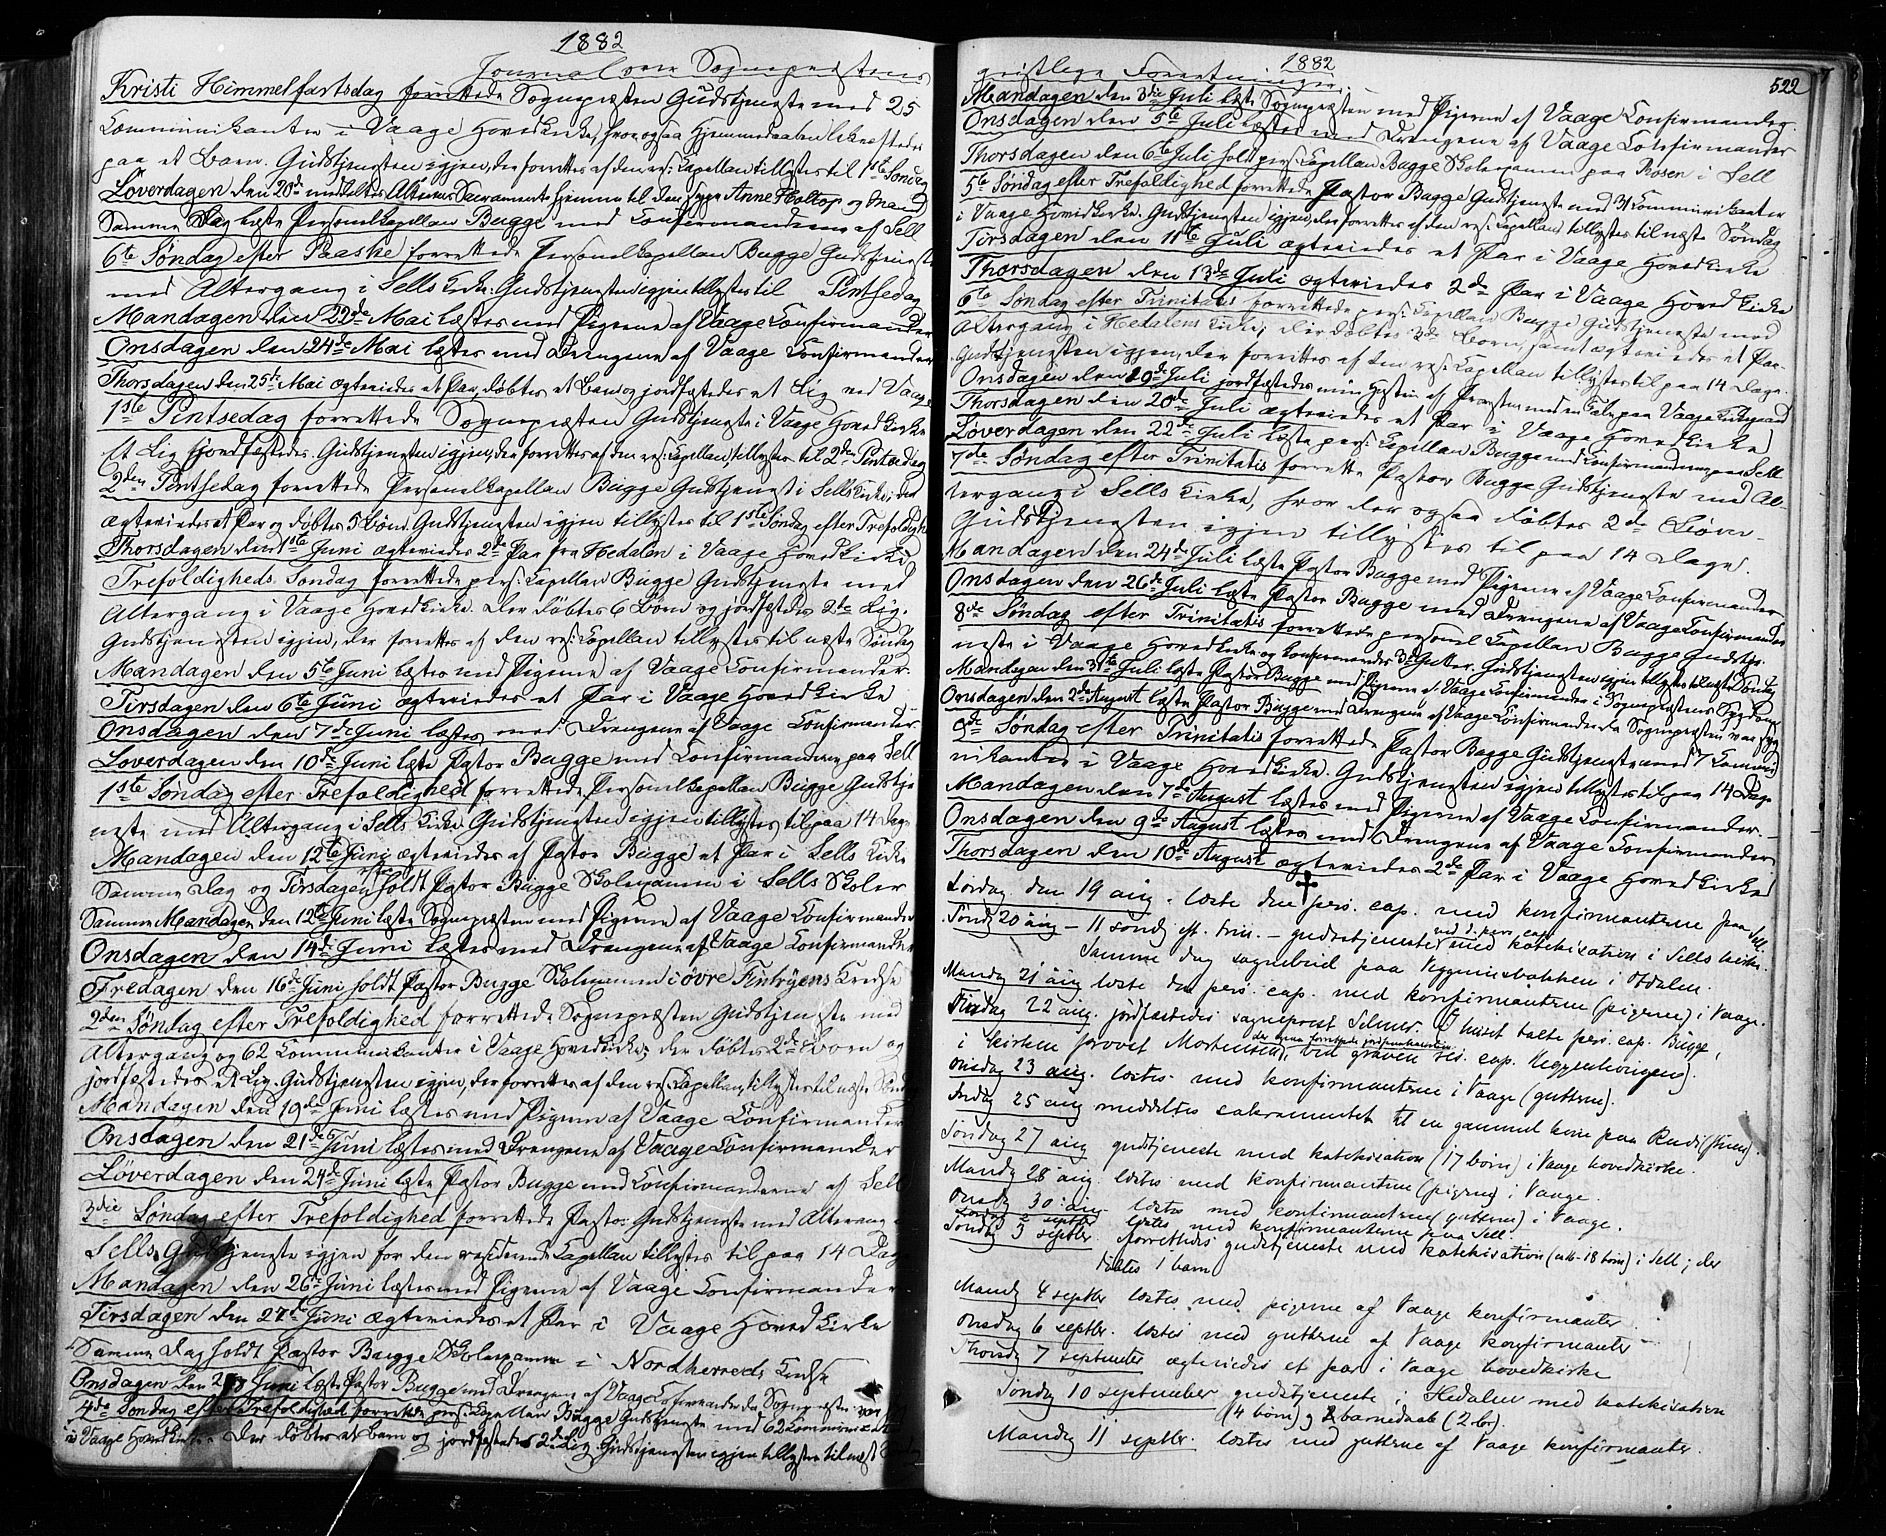 1882
Journal over Sognepræstens
Kristi Himmelfartsdag forrettede Sognepræsten Gudstjeneste med 25
Kommunikanter i Vaage Hovedkirke, hvor ogsaa Hjemmedaaben
paa et Barn. Gudstjenesten igjen, der forrettes af den res: Kapellan tillystes til 1ste Søndag
Løverdagen den 20de meddeltes Alterens Sacramente hjemme til den syge Anne Holtop og Mand
Samme Dag læste Personelkapellan Bugge med Confirmanderne af Sell
6te Søndag efter Paaske forrettede Personelkapellan Bugge Gudstjeneste
med Altergang i Sells Kirke. Gudstjenesten igjen tillystes til Pintsedag
Mandagen den 22de Mai læstes med Pigerne af Vaage Confirmander
Onsdagen den 24de Mai læstes med Drengene af Vaage Confirmander
Thorsdagen den 25te Mai ægteviedes et Par, døbtes et Barn og jordfæstedes et Lig ved Vaage
1ste Pintsedag forrettede Sognepræsten Gudstjeneste i Vaage Hovedkirke
Et Lig jordfæstedes. Gudstjenesten igjen, der forrettes af den res: Kapellan, tillystes til 2den Pintsedag
2den Pintsedag forrettede Personelkapellan Bugge Gudstjeneste i Sells Kirke; der
ægteviedes et Par og døbtes 5 Børn. Gudstjenesten igjen tillystes til 1ste Søndag efter Trefoldigh
Thorsdagen den 1ste Juni ægteviedes 2de Par fra Hedalen i Vaage Hovedkirke
Trefoldigheds Søndag forrettede pers: Capellan Bugge Gudstjeneste med
Altergang i Vaage Hovedkirke. Der døbtes 6 Børn og jordfæstedes 2de Lig.
Gudstjenesten igjen, der forrettes af den res: Capellan tillystes til næste Søndag
Mandagen den 5te Juni læstes med Pigerne af Vaage Confirmander.
Tirsdagen den 6te Juni ægteviedes et Par i Vaage Hovedkirke
Onsdagen den 7de Juni læstes med Drengene af Vaage Confirmander.
Løverdagen den 10de Juni læste Pastor Bugge med Confirmanderne paa Sell
1ste Søndag efter Trefoldighed forrettede Personelkapellan Bugge Gudstje
neste med Altergang i Sells Kirke. Gudstjenesten igjen tillystes til paa 14 Dage
Mandagen den 12te Juni ægteviedes af Pastor Bugge et Par i Sells Kirke
Samme Dag og Tirsdagen holdt Pastor Bugge Skolexamen i Sells Skoler
Samme Mandagen den 12te Juni læste Sognepræsten med Pigerne af Vaage Confirmander
Onsdagen den 14de Juni læstes med Drengene af Vaage Confirmander
Fredagen den 16de Juni holdt Pastor Bugge Skolexamen i øvre Finbryens Kredse
2den Søndag efter Trefoldighed forrettede Sognepræsten Gudstjeneste med
Altergang og 62 Communikanter i Vaage Hovedkirke; der døbtes 2de Børn og
jordfæstedes et Lig. Gudstjenesten igjen, der forrettes af den res: Kapellan, tillystes til næste Sønd
Mandagen den 19de Juni læstes med Pigerne af Vaage Confirmander
Onsdagen den 21de Juni læstes med Drengene af Vaage Confirmander
Løverdagen den 24de Juni læste Pastor Bugge med Confirmanderne af Sell
3die Søndag efter Trefoldighed forrettede Pastor Gudstjeneste med Altergang i
Sells. Gudstjeneste igjen for den residerende Capellan tillystes til paa 14 Dag
Mandagen den 26de Juni læstes med Pigerne af Vaage Confirmander.
Tirsdagen den 27de Juni ægteviedes et Par i Vaage Hovedkirke
Samme Dag holdt Pastor Bugge Skolexamen i Nordherreds Kredse
Onsdagen den Juni læste Pastor Bugge med Drengene af Vaage Confirmander da Sognepræsten var
4de Søndag efter Trefoldighed forrettede pers: Capellan Bugge Gudstjeneste med 62 Kommunikanter
i Vaage Hovedkirke. Der døbtes et Barn og jordfæstedes 2de Lig. Gudstjenesten igjen tillystes til næst
1882
522
geistlige Forretninger.
Mandagen den 3die Juli læste Sognepræsten med Pigerne af Vaage Confirmander.
Onsdagen den 5te Juli læstes med Drengene af Vaage Confirmander
Thorsdagen den 6te Juli holdt pers: Capellan Bugge Skolexamen paa Rosen i Sell
5te Søndag efter Trefoldighed forrettede Pastor Bugge Gudstjeneste med 31 Communikanter
i Vaage Hovedkirke. Gudstjenesten igjen, der forrettes af den res: Capellan tillystes til næste Søndag
Tirsdagen den 11te Juli ægteviedes et Par i Vaage Hovedkirke
Thorsdagen den 13de Juli ægteviedes 2de Par i Vaage Hovedkirke
6te Søndag efter Trinitatis forrettede pers: Capellan Bugge Gudstjeneste med
Altergang i Hedalens Kirke; der døbtes 3de Børn, samt ægteviedes et Par.
Gudstjenesten igjen, der forrettes af den res: Capellan tillystes til paa 14 Dage.
Onsdagen den 19de Juli jordfæstedes min Hustru af Provsten med en Tale paa Vaage Kirkegaard
Thorsdagen den 20de Juli ægteviedes et Par i Vaage Hovedkirke
Løverdagen den 22de Juli læste pers: Capellan Bugge med Confirmanderne paa Sell
7de Søndag efter Trinitatis forrette Pastor Bugge Gudstjeneste med Al-
tergang i Sells Kirke, hvor der ogsaa døbtes 2de Børn.
Gudstjenesten igjen tillystes til paa 14 Dage.
Mandagen den 24de Juli læste Pastor Bugge med Pigerne af Vaage Confirmander
Onsdagen den 26de Juli læste Pastor Bugge med Drengene af Vaage Confirmander
8de Søndag efter Trinitatis forrettede personel Capellan Bugge Gudstje-
neste i Vaage Hovedkirke og confirmandes 3de Gutter. Gudstjenesten igjen tillystes til næste Søndag
Mandagen den 31te Juli læste Pastor Bugge med Pigerne af Vaage Confirmander i Sognepræstens Sygdom
Onsdagen den 2de August læste Pastor Bugge med Drengene af Vaage Confirmander da Sognepræsten var syg
9de Søndag efter Trinitatis forrettede Pastor Bugge Gudstjeneste med 7 Kommu
nikanter i Vaage Hovedkirke. Gudstjenesten igjen tillystes til paa 14 Dage
Mandagen den 7de August læstes med Pigerne af Vaage Confirmander.
Onsdagen den 9de August læstes med Drengene af Vaage Confirmander
Thorsdagen den 10de August ægteviedes 2de Par i Vaage Hovedkirke
†
Lørdag den 19 aug. læste den pers. cap. med konfirmanterne paa Sell.
Søndg 20 aug – 11 søndg eft. trin. – gudstjeneste ved d. pers. cap. med katekisation i Sells kirke.
Samme dag sognebud paa Veggumsbakken i Ottdalen.
Mandg 21 aug læste den pers. cap. med konfirmanterne (pigerne) i Vaage.
Tirsdag 22 aug. jordfæstedes sogneprest Selmer. I huset talte pers. cap. Bugge,
i kirken provst Mortensen, der ogsaa forrettede jordpaakastelsen, ved graven res. cap. Heggenhougen).
Onsdag 23 aug. læstes med konfirmanterne i Vaage (gutterne).
Fredag 25 aug meddeltes sakramentet til en gammel kone paa Rudi (Hun).
Søndag 27 aug gudstjeneste med katekisation (17 børn) i Vaage hovedkirke.
Mandg 28 aug. læstes med konfirmanterne (pigerne) i Vaage.
Onsdg 30 aug. læstes med konfirmanterne (gutterne) i Vaage.
Lørdag 2 septbr læstes med konfirmanterne fra Sell.
Søndag 3 septbr. forrettedes gudstjeneste med katekisation (ca. 18 børn) i Sell; der
døbtes 1 barn
Mandg 4 septbr læstes med pigerne af Vaage konfirmanter.
Onsdag 6 septbr. læstes med gutterne af Vaage konfirmanter
Thorsdg 7 september ægteviedes et par i Vaage hovedkirke
Søndag 10 september gudstjeneste i Hedalen med katekisation
(4 børn) og 2 barnedaab (2 br).
Mandag 11 septbr. læstes med gutterne af Vaage konfirmanter.